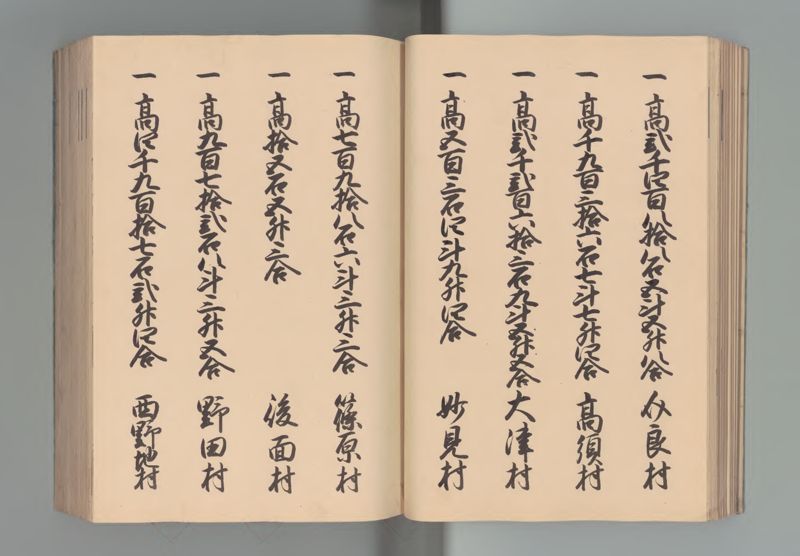 一 高弐千四百八拾八石五斗五升八合 介良村
一 高千九百三拾六石七斗七升四合 高須村
一 高弐千弐百六拾三石九斗五升五合 大津村
一 高五百三石四斗九升四合 妙見村
一 高七百九拾八石六斗三升三合 篠原村
一 高拾五石五升三合 後面村
一 高九百七拾弐石八斗三升五合 野田村
一 高四千九百拾七石弐升四合 西野地村